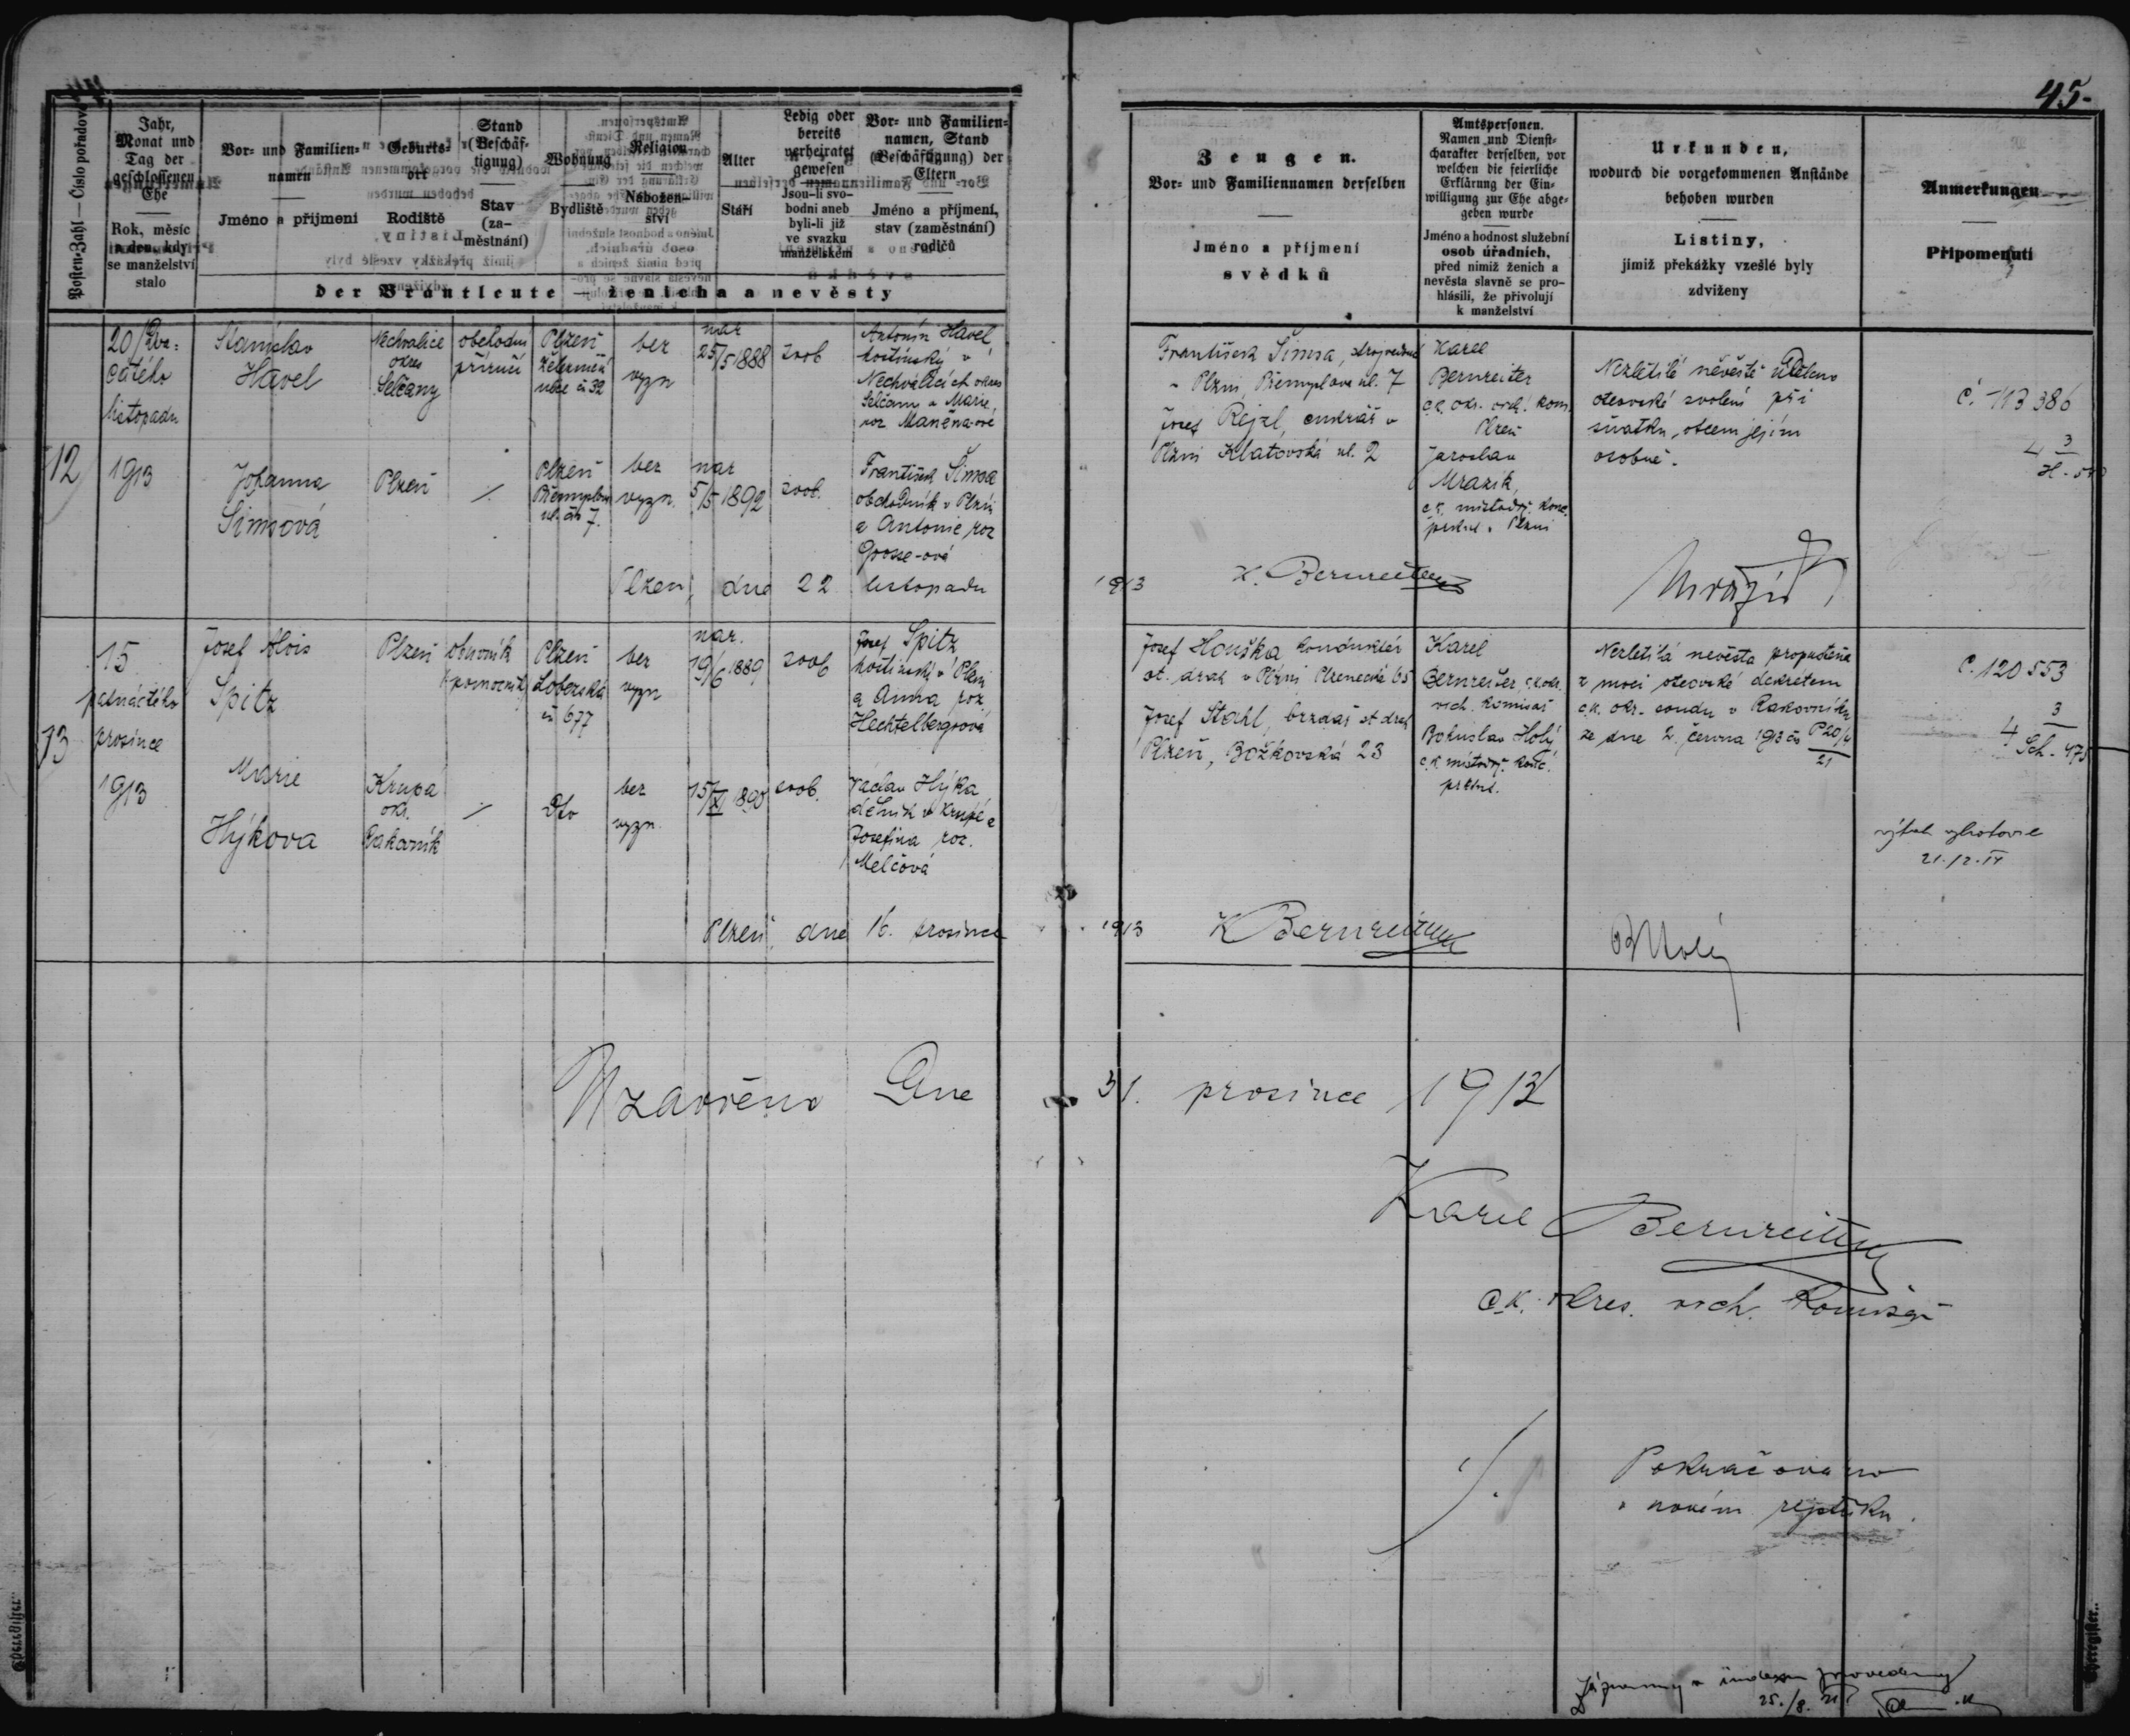 45.
Posten-Zahl — Číslo pořadové
Jahr,
Monat und
Tag der
geschlossenen
Ehe
Rok, měsíc
a den, kdy
se manželství
stalo
Vor- und Familien-
namen
Jméno a příjmení
Geburts-
ort
Rodiště
Stand
(Beschäf-
tigung)
Stav
(za-
městnání)
Wohnung
Bydliště
Religion
Nábožen-
ství
Alter
Stáří
Ledig oder
bereits
verheiratet
gewesen
Jsou-li svo-
bodni aneb
byli-li již
ve svazku
manželském
Vor- und Familien-
namen, Stand
(Beschäftigung) der
Eltern
Jméno a příjmení,
stav (zaměstnání)
rodičů
der Brautleute — ženicha a nevěsty
Zeugen.
Vor- und Familiennamen derselben
Jméno a příjmení
svědků
Amtspersonen.
Namen und Dienst-
charakter derselben, vor
welchen die feierliche
Erklärung der Ein-
willigung zur Ehe abge-
geben wurde
Jméno a hodnost služební
osob úřadních,
před nimiž ženich a
nevěsta slavně se pro-
hlásili, že přivolují
k manželství
Urkunden,
wodurch die vorgekommenen Anstände
behoben wurden
Listiny,
jimiž překážky vzešlé byly
zdviženy
Anmerkungen
Připomenutí
12
20/Dva=
cátého
listopadu
1913
Stanislav
Havel
Nechvalice
okres
Selčany
obchodní
příručí
Plzeň
ulice č 32
bez
vyzn
nar
25/5 1888
svob
Antonín Havel
hostinský v
Nechvalicích okres
Selčany a Marie,
roz
Johanna
Šimsová
Plzeň
Plzeň
Přemyslova
ul. čís 7.
bez
vyzn.
nar
5/5 1892
svob.
František Šimsa
obchodník v Plzni
a Antonie, roz
Grosse-ová
František Šimsa, strojvedoucí
v Plzni, Přemyslova ul. 7
Josef Rejzl, cukrář v
Plzni Klatovská ul. 2
Karel
Bernreiter
c.k. okr. vrch. kom.
Plzeň
Jaroslav
Mrazík,
c.k. místodrž. konc.
prakt. v Plzni
Nezletilé nevěstě uděleno
otcovské svolení při
sňatku, otcem jejím
osobně.
č. 113 386
4 3
H - 5
Plzeň, dne 22 listopadu 1913
K. Bernreiter
Mrazík
13
15
patnáctého
prosince
1913
Josef Alois
Spitz
Plzeň
obuvník
(pomocník)
Plzeň
Loberská
č 677
bez
vyzn
nar.
19/6 1889
svob
Josef Spitz
hostinský v Plzni
a Anna roz.
Hechtelbergrová
Marie
Hýkova
Krupá
okr.
Rakovník
Dto
bez
vyzn.
15/XI 1890
svob.
Václav Hýka
dělník v Krupé a
Josefina roz.
Melčová
Josef Houška konduktér
st. drah v Plzni, Plzenecká 65
Josef Stahl, brzdař st drah
Plzeň, Božkovská 23
Karel
Bernreiter, c.k. okr.
vrch. komisař
Bohuslav Holý
c.k. místodrž. konc.
prakt.
Nezletilá nevěsta propuštěna
z moci otcovské dekretem
c.k. okr. soudu v Rakovníku
ze dne 2. června 1913 čís P 20/4
21
č. 120 553
4 3
Sch - 475
výtah vyhotoven
21.12.14
Plzeň, dne 16. prosince 1913
K Bernreiter
B Holý
Uzavřeno Dne 31. prosince 1913
Karel Bernreiter
c.k. okres. vrch. komisař
Pokračováno
v novém rejstříku.
Zápisy v indexu provedeny
25./8.